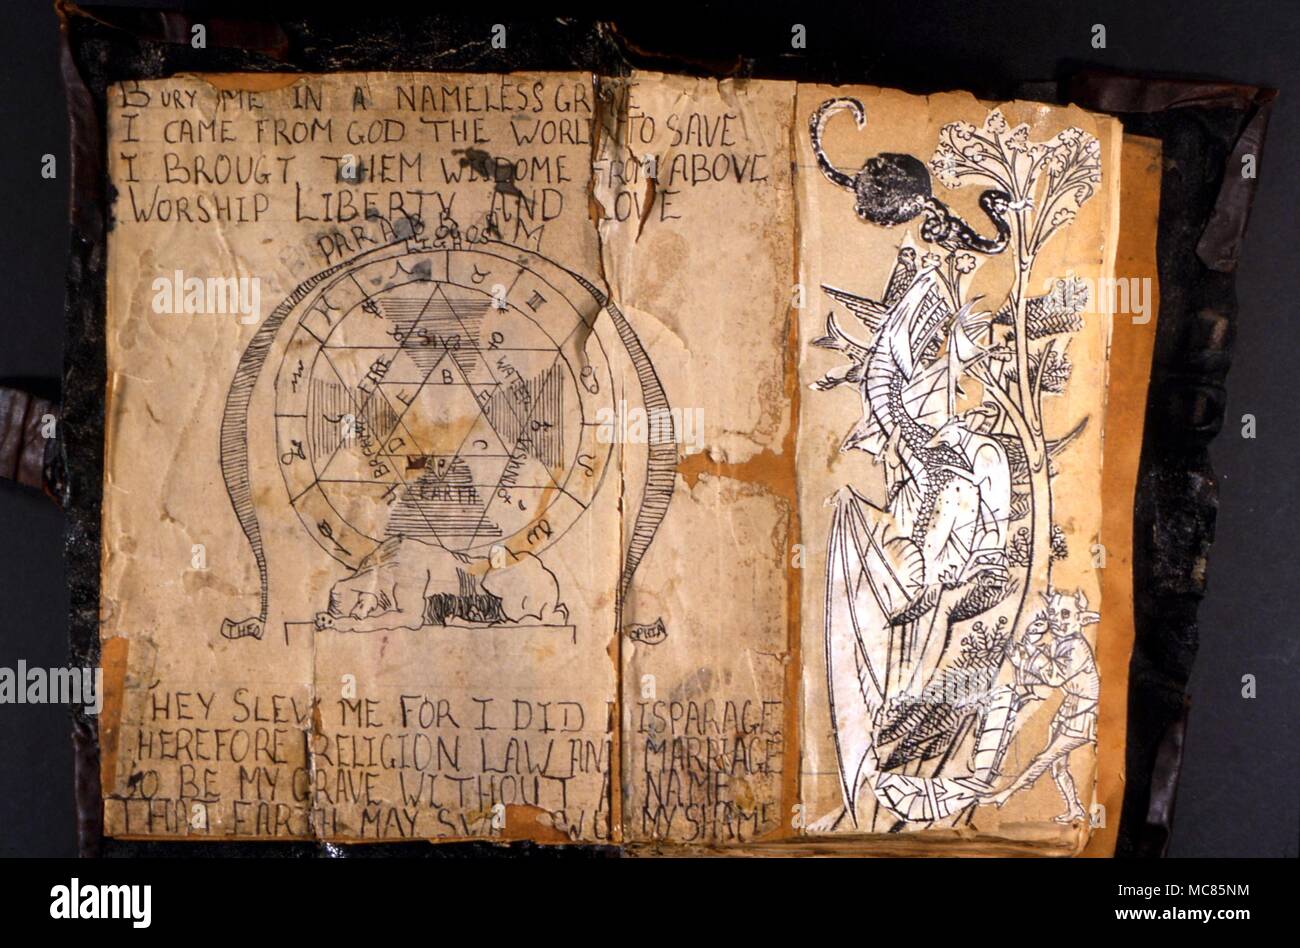 BURY ME IN A NAMELESS GR E
I CAME FROM GOD THE WORLD TO SAVE
I BROUGT THEM WISDOME FROM ABOVE
WORSHIP LIBERTY AND LOVE
LIGHOS
SIVA
FIRE
WATER
B
E
D
C
EARTH
THEO
SOPHIA
THEY SLEW ME FOR I DID ISPARAGE
HEREFORE RELIGION LAW AN MARRIAGE
SO BE MY GRAVE WITHOUT A NAME
THAT EARTH MAY SW W MY SHAME
a
alamy
Image ID: MC85NM
www.alamy.com